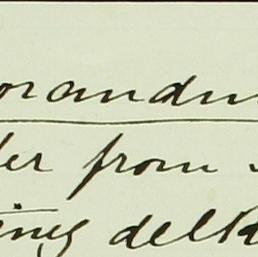 orandu
er from
ing delk